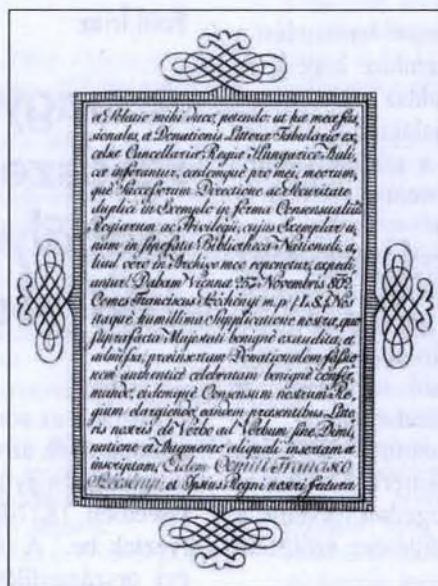 a Oblatio mihi duce, petendo: ut hæ meæ fas
sionales, a Donationis Litteræ Tabulario ex
celsæ Cancellariæ Regiæ Hungaricæ Auli
cæ inferantur, eædemque pro mei, meorum,
què Successorum Directione ac Securitate
duplici in Exemplo in forma Consensualium
Regiarum ac Privilegii, cujus Exemplar u,
num in sæpefata Bibliotheca Nationali, a,
liud vero in Archivo meo reponetur, expedi
antur. Datum Viennæ 25a Novembris 802.
Comes Franciscus Széchényi m. p. L. S. Nos
itaque humillima Supplicatione nostra, quo
supra facta Majestati benignè exaudita, et
admissa, præinsertam Donationalem fassio
nem authenticè celebratam benignè confir
mando, eidemque Consensum nostrum Re,
gium elargiendo, eandem præsentibus Litte
ris nostris de Verbo ad Verbum sine Dimi,
nutione et Augmento aliquali insertam a
inscriptam, Eidem Comiti Francisco
Széchényi et Ipsius Regni nostri futura